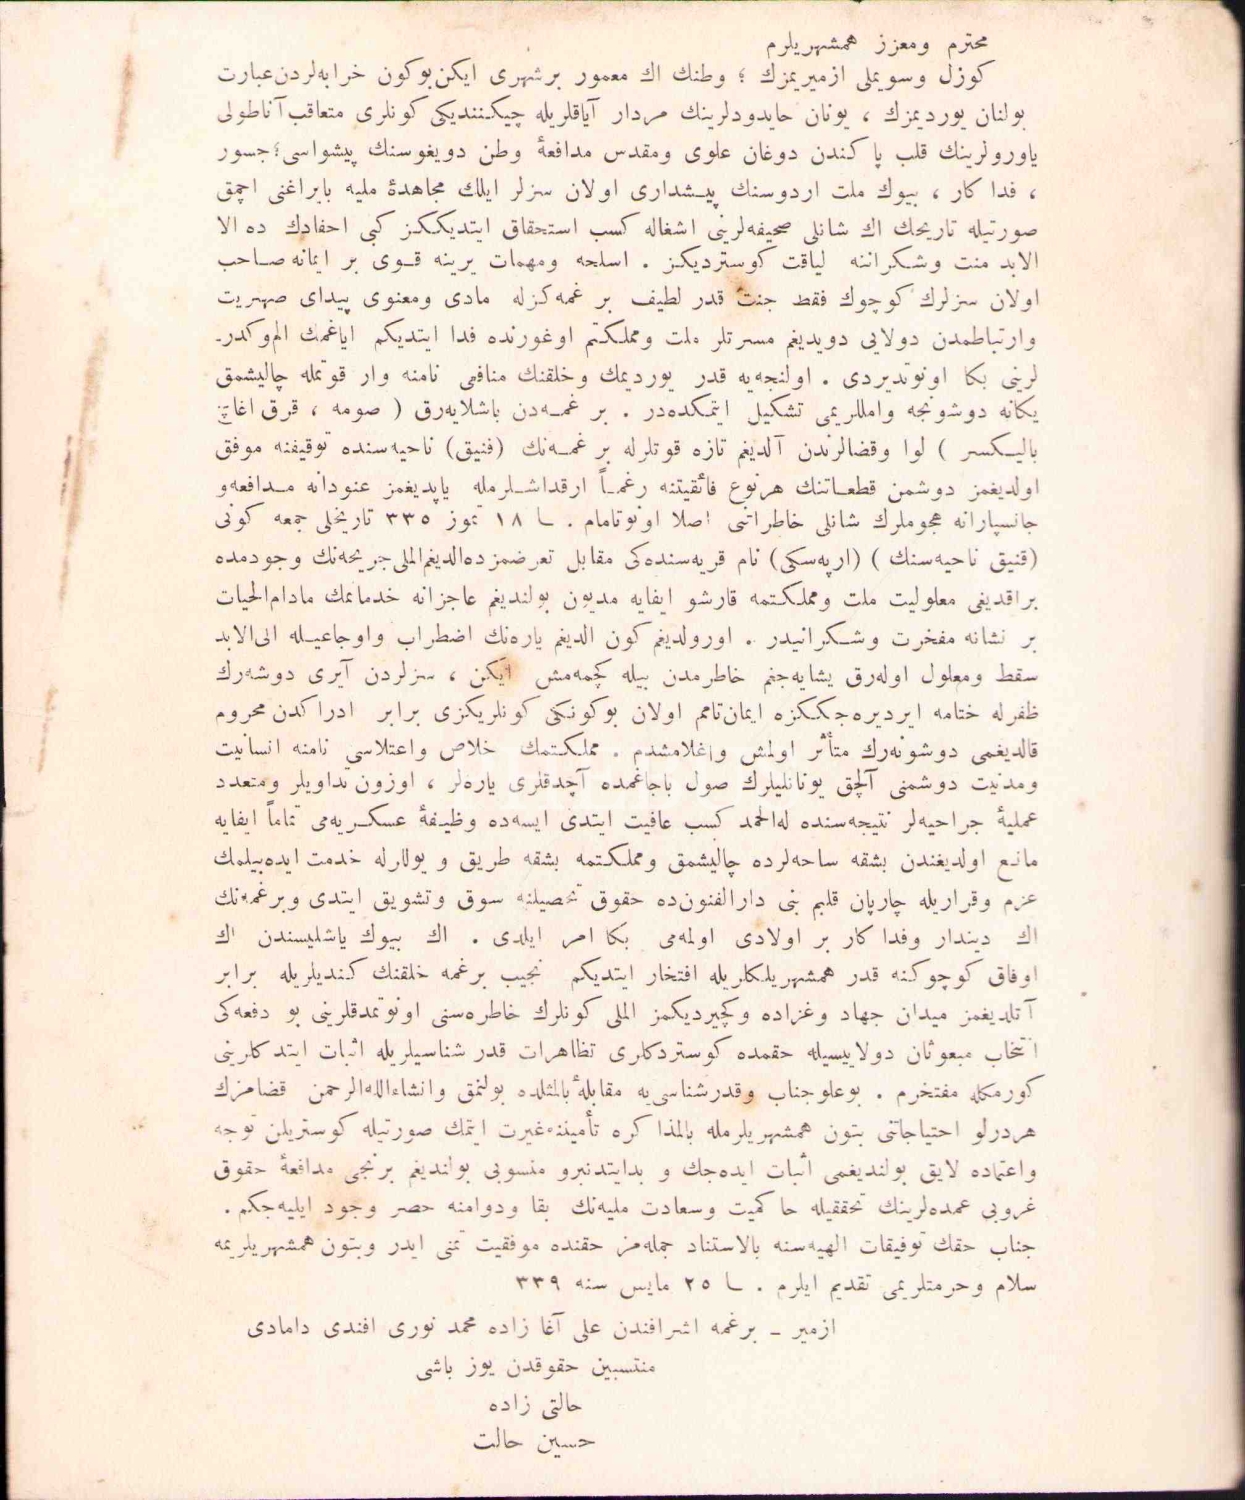 محترم ومعزز همشهریلرم
كوزل وسویملی ازمیریمزك ؛ وطنك اك معمور برشهری ایكن‌بوكون خرابه‌لردن‌عبارت
بولنان یوردیمزك ، یونان حایدودلرینك مردار آیاقلریله چیكنندیكی كونلری متعاقب‌آناطولی
یاورولرینك قلب پاكندن دوغان علوی ومقدس مدافعۀ وطن دویغوسنك پیشواسی؛جسور
، فداكار ، بیوك ملت اردوسنك پیشداری اولان سزلر ایلك مجاهدۀ ملیه بایراغنی اچمق
صورتیله تاریخك اك شانلی صحیفه‌لرینی اشغاله كسب استحقاق ایتدیككز كبی احفادك ده الا
الابد منت وشكراننه لیاقت كوستردیكز . اسلحه ومهمات یرینه قوی بر ایمانه صاحب
اولان سزلرك كوچوك فقط جنت قدر لطیف بر غمه‌كزله مادی ومعنوی پیدای صهریت
وارتباطمدن دولایی دویدیغم مسرتلر ملت ومملكتم اوغورنده فدا ایتدیكم ایاغمك الم‌وكدر-
لرینی بكا اونوتدیردی . اولنجه‌یه قدر یوردیمك وخلقنك منافعی نامنه وار قوتمله چالیشمق
یكانه دوشونجه واملریمی تشكیل ایتمكده‌در . بر غمه‌دن باشلایه‌رق ( صومه ، قرق اغاچ
بالیكسر ) لوا وقضالرندن آلدیغم تازه قوتلرله بر غمه‌نك (قنیق) ناحیه‌سنده توقیفنه موفق
اولدیغمز دوشمن قطعاتنك هرنوع فائقیتنه رغماً ارقداشلرمله یاپدیغمز عنودانه مدافعه‌و
جانسپارانه هجوملرك شانلی خاطراتنی اصلا اونوتامام . ـ ١٨ تموز ٣٣٥ تاریخلی جمعه كونی
(قنیق ناحیه‌سنك ) (ارپه‌سكی) نام قریه‌سنده‌كی مقابل تعرضمزده‌الدیغم‌المللی‌جریحه‌نك وجودمده
براقدیغی معلولیت ملت ومملكتمه قارشو ایفایه مدیون بولندیغم عاجزانه خدماتمك مادام‌الحیات
بر نشانه مفخرت وشكرانیدر . اورولدیغم كون الدیغم یاره‌نك اضطراب واوجاعیله الی‌الابد
سقط ومعلول اوله‌رق یشایه‌جغم خاطرمدن بیله كچمه‌مش ایكن ، سزلردن آیری دوشه‌رك
ظفرله ختامه ایردیره‌جككزه ایمان‌تامم اولان بوكونكی كونلریكزی برابر ادراكدن محروم
قالدیغمی دوشونه‌رك متأثر اولمش واغلامشدم . مملكتمك خلاص واعتلاسی نامنه انسانیت
ومدنیت دوشمنی آلچق یونانلیلرك صول باجاغمده آچدقلری یاره‌لر ، اوزون تداویلر ومتعدد
عملیۀ جراحیه‌لر نتیجه‌سنده له‌الحمد كسب عافیت ایتدی ایسه‌ده وظیفۀ عسكریه‌می تماماً ایفایه
مانع اولدیغندن بشقه ساحه‌لرده چالیشمق ومملكتمه بشقه طریق و یوللرله خدمت ایده‌بیلمك
عزم وقراریله چارپان قلبم بنی دارالفنون‌ده حقوق تحصیلنه سوق وتشویق ایتدی وبرغمه‌نك
اك دیندار وفداكار بر اولادی اولمه‌می بكا امر ایلدی . اك بیوك یاشلیسندن اك
اوفاق كوچوكنه قدر همشهریلكلریله افتخار ایتدیكم نجیب برغمه خلقنك كندیلریله برابر
آتلدیغمز میدان جهاد وغزاده وكچیردیكمز المللی كونلرك خاطره‌سنی اونوتمدقلرینی بو دفعه‌كی
انتخاب مبعوثان دولاییسیله حقمده كوستردكلری تظاهرات قدر شناسیلریله اثبات ایتدكلرینی
كورمكله مفتخرم . بوعلوجناب وقدرشناسی‌یه مقابلۀ بالمثلده بولنمق وانشاءالله‌الرحمن قضامزك
هردرلو احتیاجاتنی بتون همشهریلرمله بالمذاكره تأمیننه‌غیرت ایتمك صورتیله كوستریلن توجه
واعتماده لایق بولندیغمی اثبات ایده‌جك و بدایتدنبرو منسوبی بولندیغم برنجی مدافعۀ حقوق
غروبی عمده‌لرینك تحققیله حاكمیت وسعادت ملیه‌نك بقا ودوامنه حصر وجود ایلیه‌جكم .
جناب حقك توفیقات الهیه‌سنه بالاستناد جمله‌مز حقنده موفقیت تمنی ایدر وبتون همشهریلریمه
سلام وحرمتلریمی تقدیم ایلرم . ـ ٢٥ مایس سنه ٣٣٩
ازمیر ـ برغمه اشرافندن علی آغا زاده محمد نوری افندی دامادی
منتسبین حقوقدن یوز باشی
حالتی زاده
حسین حالت